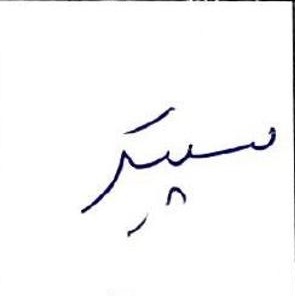 سپیکر